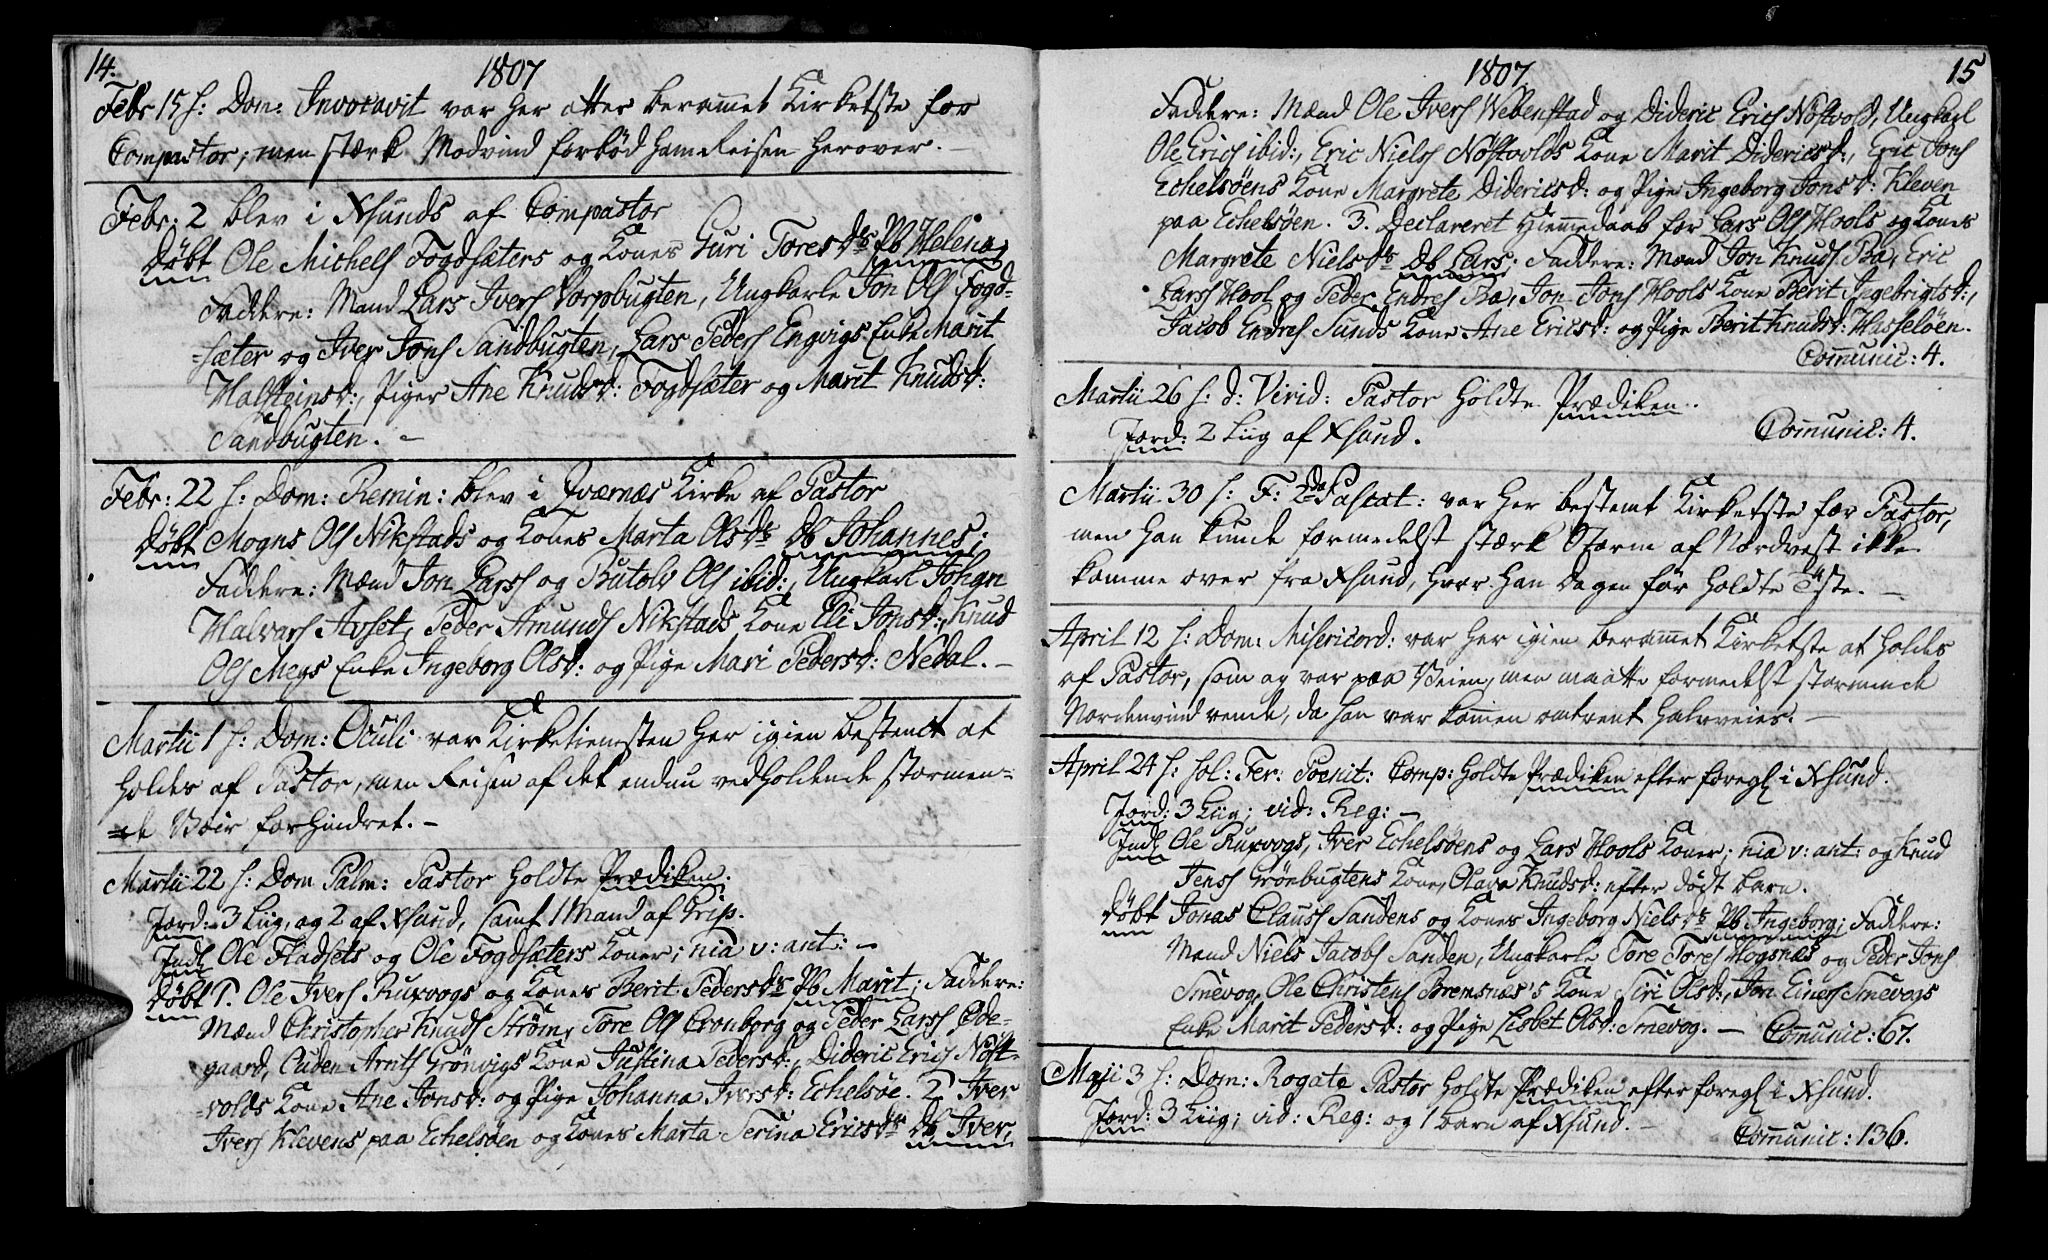 14.
1807
Febr 15 h: Dom: Invocavit var her atter berammet Kirketste for
Compastor; men stærk Modvind forbød ham Reisen herover. -
Febr: 2 blev i Xsunds af Compastor
Døbt Ole Michels Fogdsæters og Kones Guri Toresdr Pb Helena;
Faddere: Mand Lars Ivers Vorpbugten, Ungkarle Jon Ols Fogd-
-sæter og Iver Jons Sandbugten, Lars Peders Engvigs Enke Marit
Halsteinsd:, Piger Ane Knudsd: Fogdsæter og Marit Knudsd:
Sandbugten. -
Febr: 22 h: Dom: Remin: blev i Qværnæs Kirke af Pastor
Døbt Mogns Ols Nikstads og Kones Marta Olsdr Db Johannes;
Faddere: Mænd Jon Larss og Brutolv Ols ibid:, Ungkarl Johan
Halvars Avset, Peder Amunds Nikstads Kone Eli Jonsd:, Knud
Ols Meys Enke Ingeborg Olsd: og Pige Mari Pedersd: Nedal. -
Martii 1 h: Dom: Oculi var Kirketienesten her igien bestemt at
holdes af Pastor, men Reisen af det endnu vedholdende stormen-
-de Veir forhindret. -
Martii 22 h: Dom Palm: Pastor holdte Prædiken.
Jord: 3 Liig, og 2 af Xsund, samt 1 Mand af Grip.
Indl Ole Fladsets og Ole Fogdsæters Koner; nia v: ant: -
Døbt 1. Ole Ivers Ruxvogs og Kones Berit Pedersdr Pb Marit; Faddere:
Mænd Christopher Knuds Strøm, Tore Ols Cronborg og Peder Larss Øde-
gaard, Auden Arnts Grönvigs Kone Justina Pedersd:, Dideric Erics Nöst-
-volds Kone Ane Jonsd: og Pige Johanna Iversd: Echelsøe. 2. Iver
Ivers Klevens paa Echelsøen og Kones Marta Serina Ericsdr Db Iver;
1807.
15
Faddere: Mænd Ole Ivers Webenstad og Dideric Erics Nöstvold, Ungkarl
Ole Erics ibid:, Eric Niels Nöstvolds Kone Marit Didericsd:, Eric Jons
Echelsöens Kone Margrete Didericsd: og Pige Ingeborg Jonsd: Kleven
paa Echelsöen. 3. Declareret Hiemmedaab for Lars Ols Hools og Kones
Margrete Nielsdr Db Lars; Faddere: Mænd Jon Knuds Bae, Eric
Larss Hool og Peder Endres Bae, Jon Jons Hools Kone Berit Ingebrigtsd:,
Jacob Endres Sunds Kone Ane Ericsd: og Pige Berit Knudsd: Hasseløen.
Comunic: 4.
Martii 26 h: d: Virid: Pastor holdte Prædiken.
Jord: 2 Liig af Xsund.
Comunic: 4.
Martii 30 h: F: 2da Pascat: var her bestemt Kirketste for Pastor,
men han kunde formedelst stærk Storm af Nordvest ikke
komme over fra Xsund, hvor han dagen før holdte Tste. -
April 12 h: Dom: Misericord: var her igien berammet Kirketste at holdes
af Pastor, som og var paa Veien, men maatte formedelst stormende
Nordenvind vende, da han var komen omtrent halvveies. -
April 24 h: Sol: Fer: Poenit: Comp: holdte Prædiken efter foregl i Xsund.
Jord: 3 Liig; vid: Reg: -
Indl Ole Ruxvogs, Iver Echelsøens og Lars Hools Koner; nia v: ant: og Knud
Jenss Grönbugtens Kone Olava Knudsd: efter dødt barn.
Döbt Jonas Clauss Sandens og Kones Ingeborg Nielsdr Pb Ingeborg; Faddere:
Mand Niels Jacobs Sanden, Ungkarle Tore Tores Hogsnæs og Peder Jons
Smevog, Ole Christens Bremsnæs's Kone Siri Olsd:, Jon Einers Smevogs
Enke Marit Pedersd: og Pige Lisbet Olsd: Smevog. - Comunic: 67.
Maji 3 h: Dom: Rogate Pastor holdte Prædiken efter foregl i Xsund.
Jord: 3 Liig; vid: Reg: og 1 barn af Xsund. -
Comunic: 136.